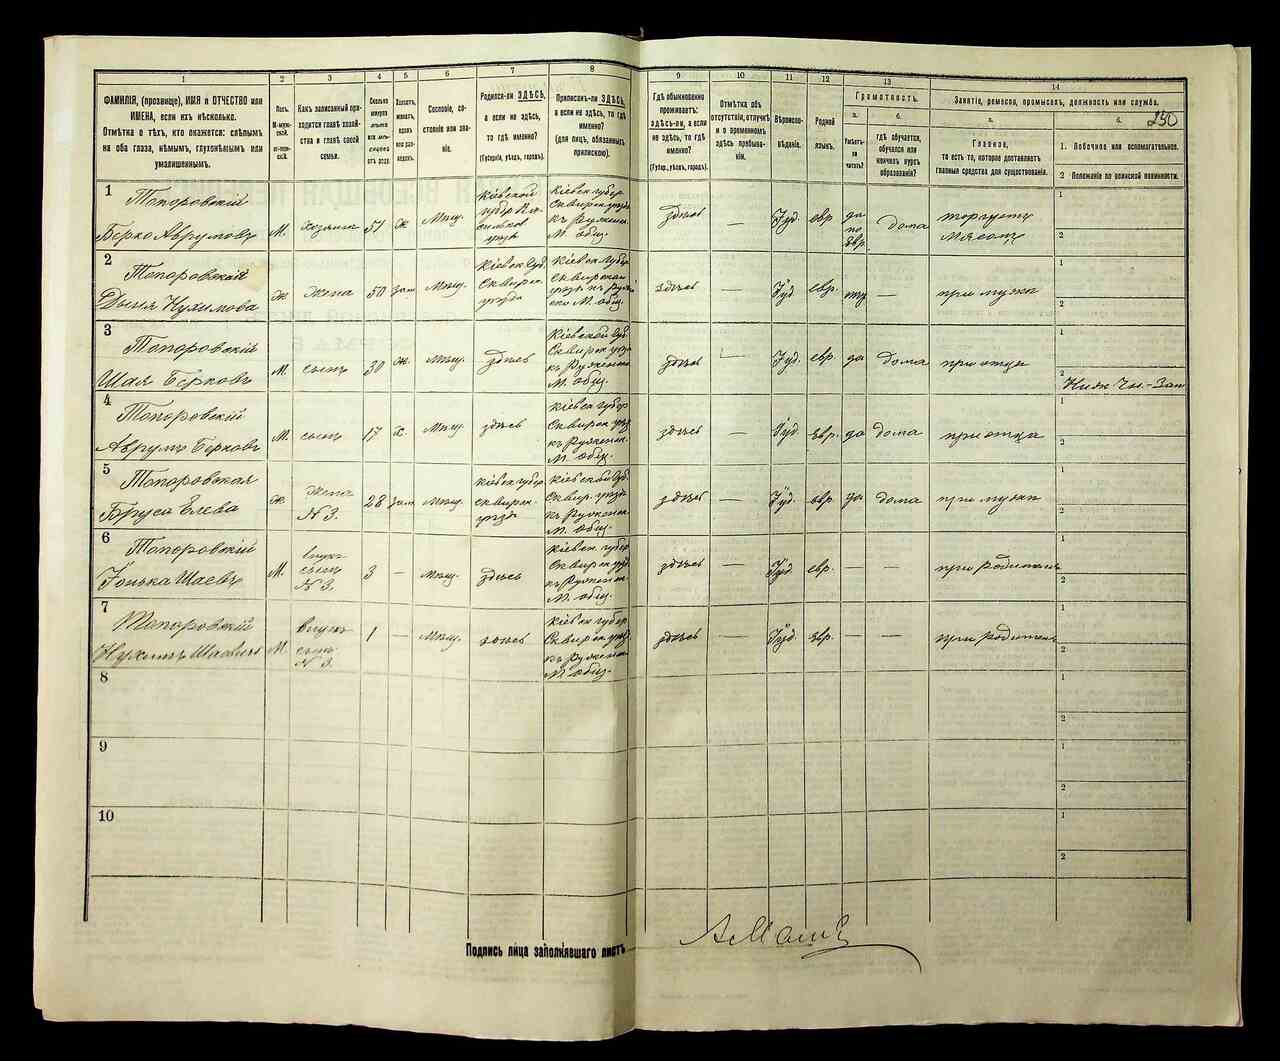 1 2 3 4 5 6 7 8 9 10 11 12 13 14
ФАМИЛІЯ, (прозвище), ИМЯ и ОТЧЕСТВО или
ИМЕНА, если ихъ нѣсколько.
Отмѣтка о тѣхъ, кто окажется: слѣпымъ
на оба глаза, нѣмымъ, глухонѣмымъ или
умалишеннымъ.
Полъ.
М-муж-
ской.
Ж-жен-
скій.
Какъ записанный при-
ходится главѣ хозяй-
ства и главѣ своей
семьи.
Сколько
минуло
лѣтъ
или мѣ-
сяцевъ
отъ роду.
Холостъ,
женатъ,
вдовъ
или раз-
веденъ.
Сословіе, со-
стояніе или зва-
ніе.
Родился-ли ЗДѢСЬ,
а если не здѣсь,
то гдѣ именно?
(Губернія, уѣздъ, городъ).
Приписанъ-ли ЗДѢСЬ,
а если не здѣсь, то гдѣ
именно?
(для лицъ, обязанныхъ
припискою).
Гдѣ обыкновенно
проживаетъ:
здѣсь-ли, а если
не здѣсь, то гдѣ
именно?
(Губер., уѣздъ, городъ).
Отмѣтка объ
отсутствіи, отлучкѣ
и о временномъ
здѣсь пребыва-
ніи.
Вѣроиспо-
вѣданіе.
Родной
языкъ.
Грамотность.
а. б.
Умѣетъ-
ли
читать?
гдѣ обучается,
обучался или
кончилъ курсъ
образованія?
Занятіе, ремесло, промыселъ, должность или служба.
а. б.
250
Главное,
то есть то, которое доставляетъ
главныя средства для существованія.
1. Побочное или вспомогательное.
2 Положеніе по воинской повинности.
1
Топоровскій
Берко Аврумовъ
М.
хозяинъ
51
ж
Мѣщ.
Кіевской
губер Ва-
сильков.
уѣзда
Кіевск губер
Сквирск уѣзда
къ Ружинск.
М. общ.
здѣсь
—
Іуд.
евр
да
по
Евр.
дома
торгуетъ
мясомъ
1
2
2
Топоровская
Дыня Нухимова
Ж
жена
50
зам
Мѣщ.
Кіевск Губ.
Сквирск.
уѣзда
Кіевск Губер
Сквирской
уѣзд къ Ружин
ско М. общ.
здѣсь
—
Іуд
евр.
—
при мужѣ
1
2
3
Топоровскій
Шая Берковъ
М.
сынъ
30
ж.
Мѣщ.
здѣсь
Кіевской Губ.
Сквирск уѣзд
къ Ружинско
М. общ.
здѣсь
—
Іуд.
евр.
да
дома
при отцѣ
1
2
Ниж Чн.-Зап
4
Топоровскій
Аврумъ Берковъ
М.
сынъ
17
х
Мѣщ.
здѣсь
Кіевск губер
Сквирск уѣзд
къ Ружинск.
М. общ.
здѣсь
—
Іуд
евр.
да
дома
при отцѣ
1
2
5
Топоровская
Ж
жена
N 3.
28
зам
Мѣщ.
Кіевск губер
Сквирск.
уѣзда
Кіевской Губ.
Сквир. уѣзда
къ Ружинск.
М. общ.
здѣсь
—
Іуд
евр
да
дома
при мужѣ
1
2
6
Топоровскій
Іонька Шаевъ
М.
внукъ
сынъ
N 3.
3
—
Мѣщ.
здѣсь
Кіевск. губер
Сквирск уѣзд
къ Ружинск.
М. общ.
здѣсь
—
Іуд
евр.
—
—
при родителяхъ
1
2
7
Топоровскій
Нухимъ Шаевичъ
М.
внукъ
сынъ
N 3.
1
—
Мѣщ.
здѣсь
Кіевск губер
Сквирск уѣзд
къ Ружинск
М. общ.
здѣсь
—
Іуд.
евр.
—
—
при родителях
1
2
8
1
2
9
1
2
10
1
2
Подпись лица заполнявшаго листъ